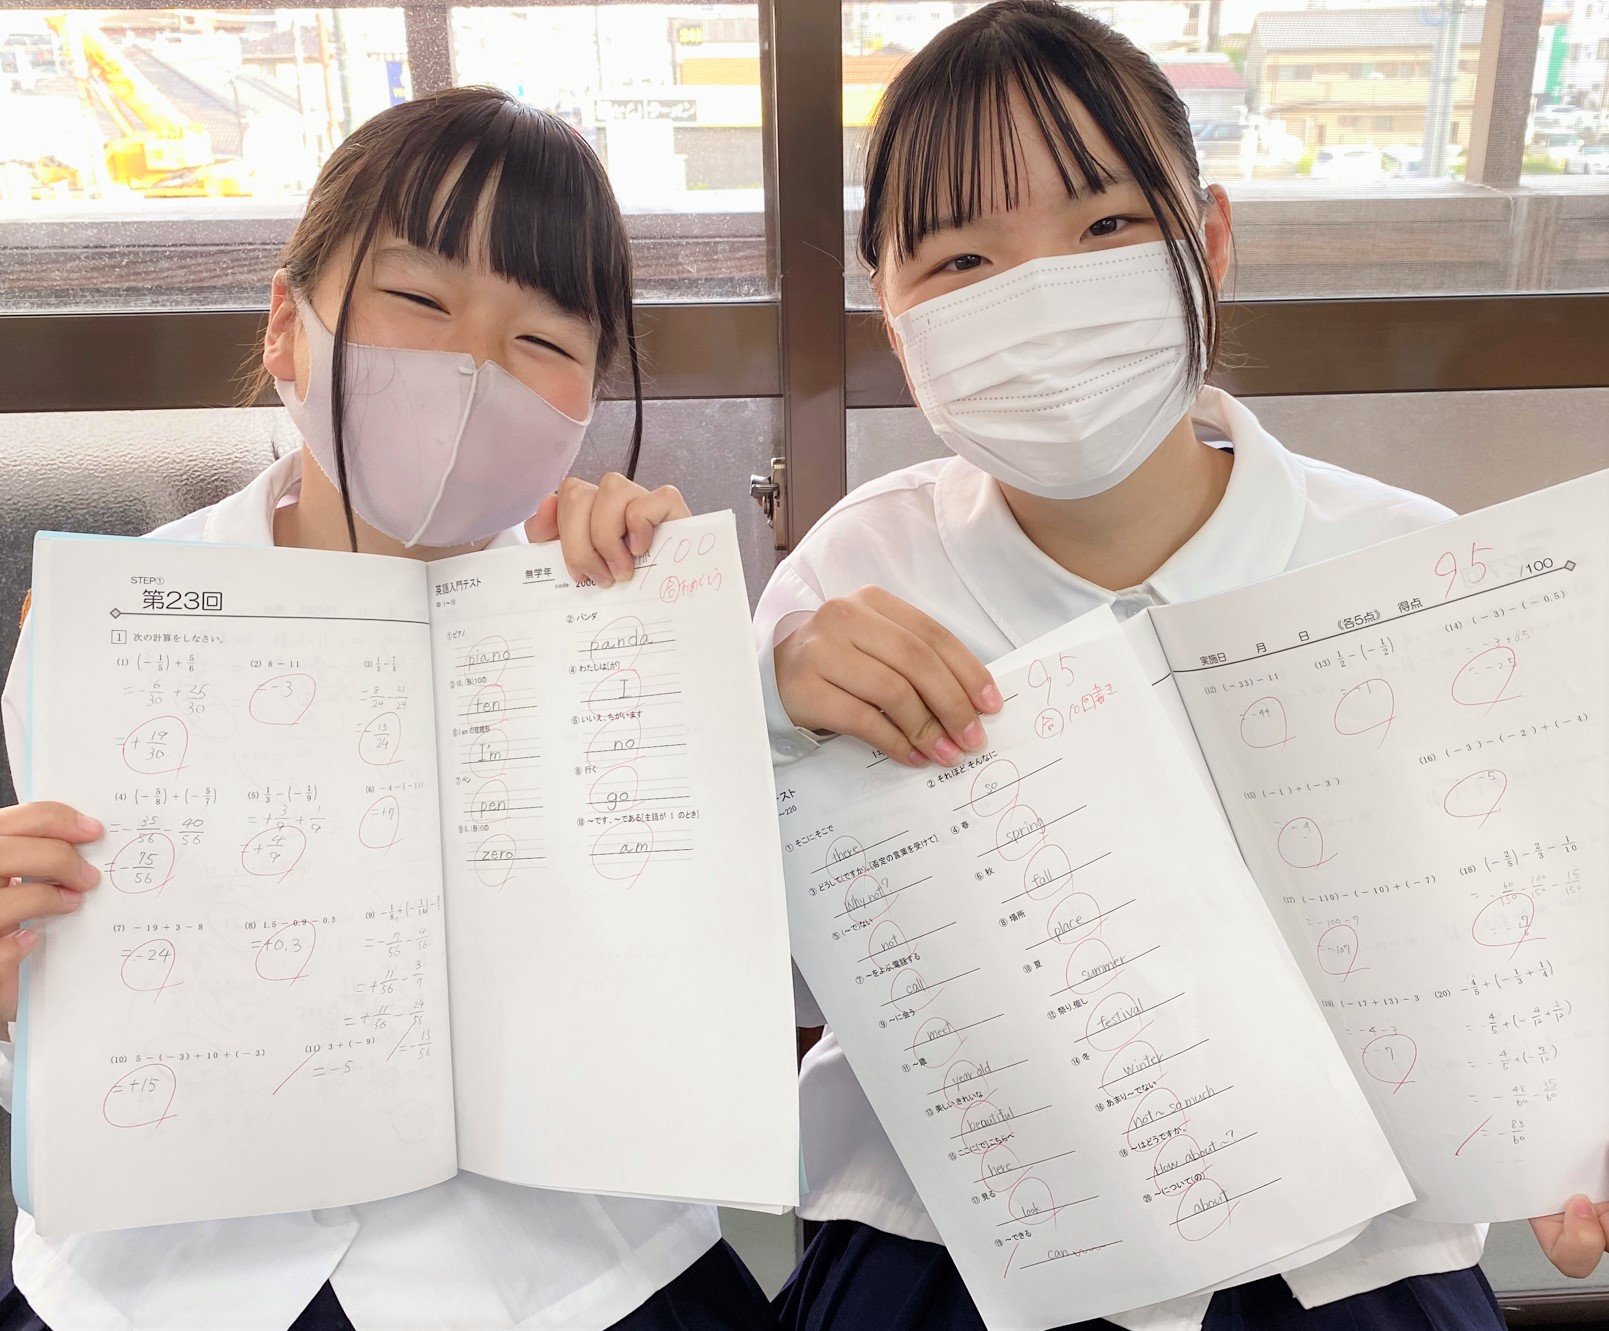 STEP①
第23回
1 次の計算をしなさい。
(1) (-1/5)+5/6
=-6/30+25/30
=+19/30
(2) 8-11
=-3
(3) 1/3-7/8
=8/24-21/24
=-13/24
(4) (-5/8)+(-5/7)
=-35/56-40/56
=-75/56
(5) 1/3-(-1/9)
=+3/9+1/9
=+4/9
(6) -4-(-11)
=+7
(7) -19+3-8
=-24
(8) 1.5-0.9-0.3
=+0.3
(9)
=+11/56-3/7
=+11/56-24/56
=-13/56
(10) 5-(-3)+10+(-3)
=+15
(11) 3+(-9)
=-5
英語入門テスト
無学年
code
100
合 おめでとう
①ピアノ
piano
②パンダ
panda
③10,(の)10の
ten
④わたしは[が]
I
⑤I amの短縮形
I'm
⑥いいえ、ちがいます
no
⑦ペン
pen
⑧行く
go
⑨0,(の)0の
zero
⑩～です、～である[主語が I のとき]
am
スト
~220
95
合 10回書き
①そこに、そこで
there
②それほど、そんなに
so
③どうして(ですか)。[否定の言葉を受けて]
Why not?
④春
spring
⑤(～で)ない
not
⑥秋
fall
⑦～をよぶ、電話する
call
⑧場所
place
⑨～に会う
meet
⑩夏
summer
⑪～歳
year old
⑫祭り、催し
festival
⑬美しい、きれいな
beautiful
⑭冬
winter
⑮ここに[で]、こちらへ
here
⑯あまり～でない
not ~ so much
⑰見る
look
⑱～はどうですか。
How about ~?
⑲～できる
can
⑳～について(の)
about
実施日 月 日 《各5点》 得点 95 /100
(12) (-33)-11
=-44
(13) 1/2-(-1/2)
=1
(14) (-3)-(-0.5)
=-3+0.5
=-2.5
(15) (-1)+(-3)
=-4
(16) (-3)-(-2)+(-4)
-5
(17) (-110)-(-10)+(-7)
=-100-7
=-107
(18) (-2/5)-2/3-1/10
=-60/150-100/150-15/150
(19) (-17+13)-3
=-4-3
=-7
(20) -4/5+(-1/3+1/4)
=-4/5+(-4/12+3/12)
=-4/5+(-7/12)
=-48/60-35/60
=-83/60